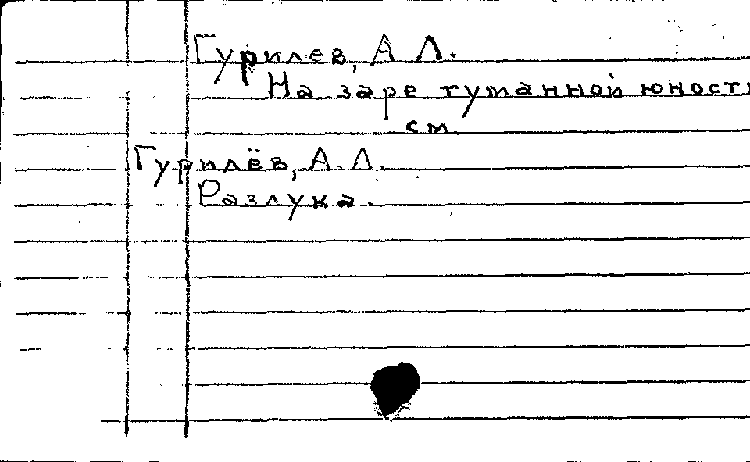 Гурилев, А Л.
На заре туманной юност
см
Гурилёв, А. Л.
Разлука.